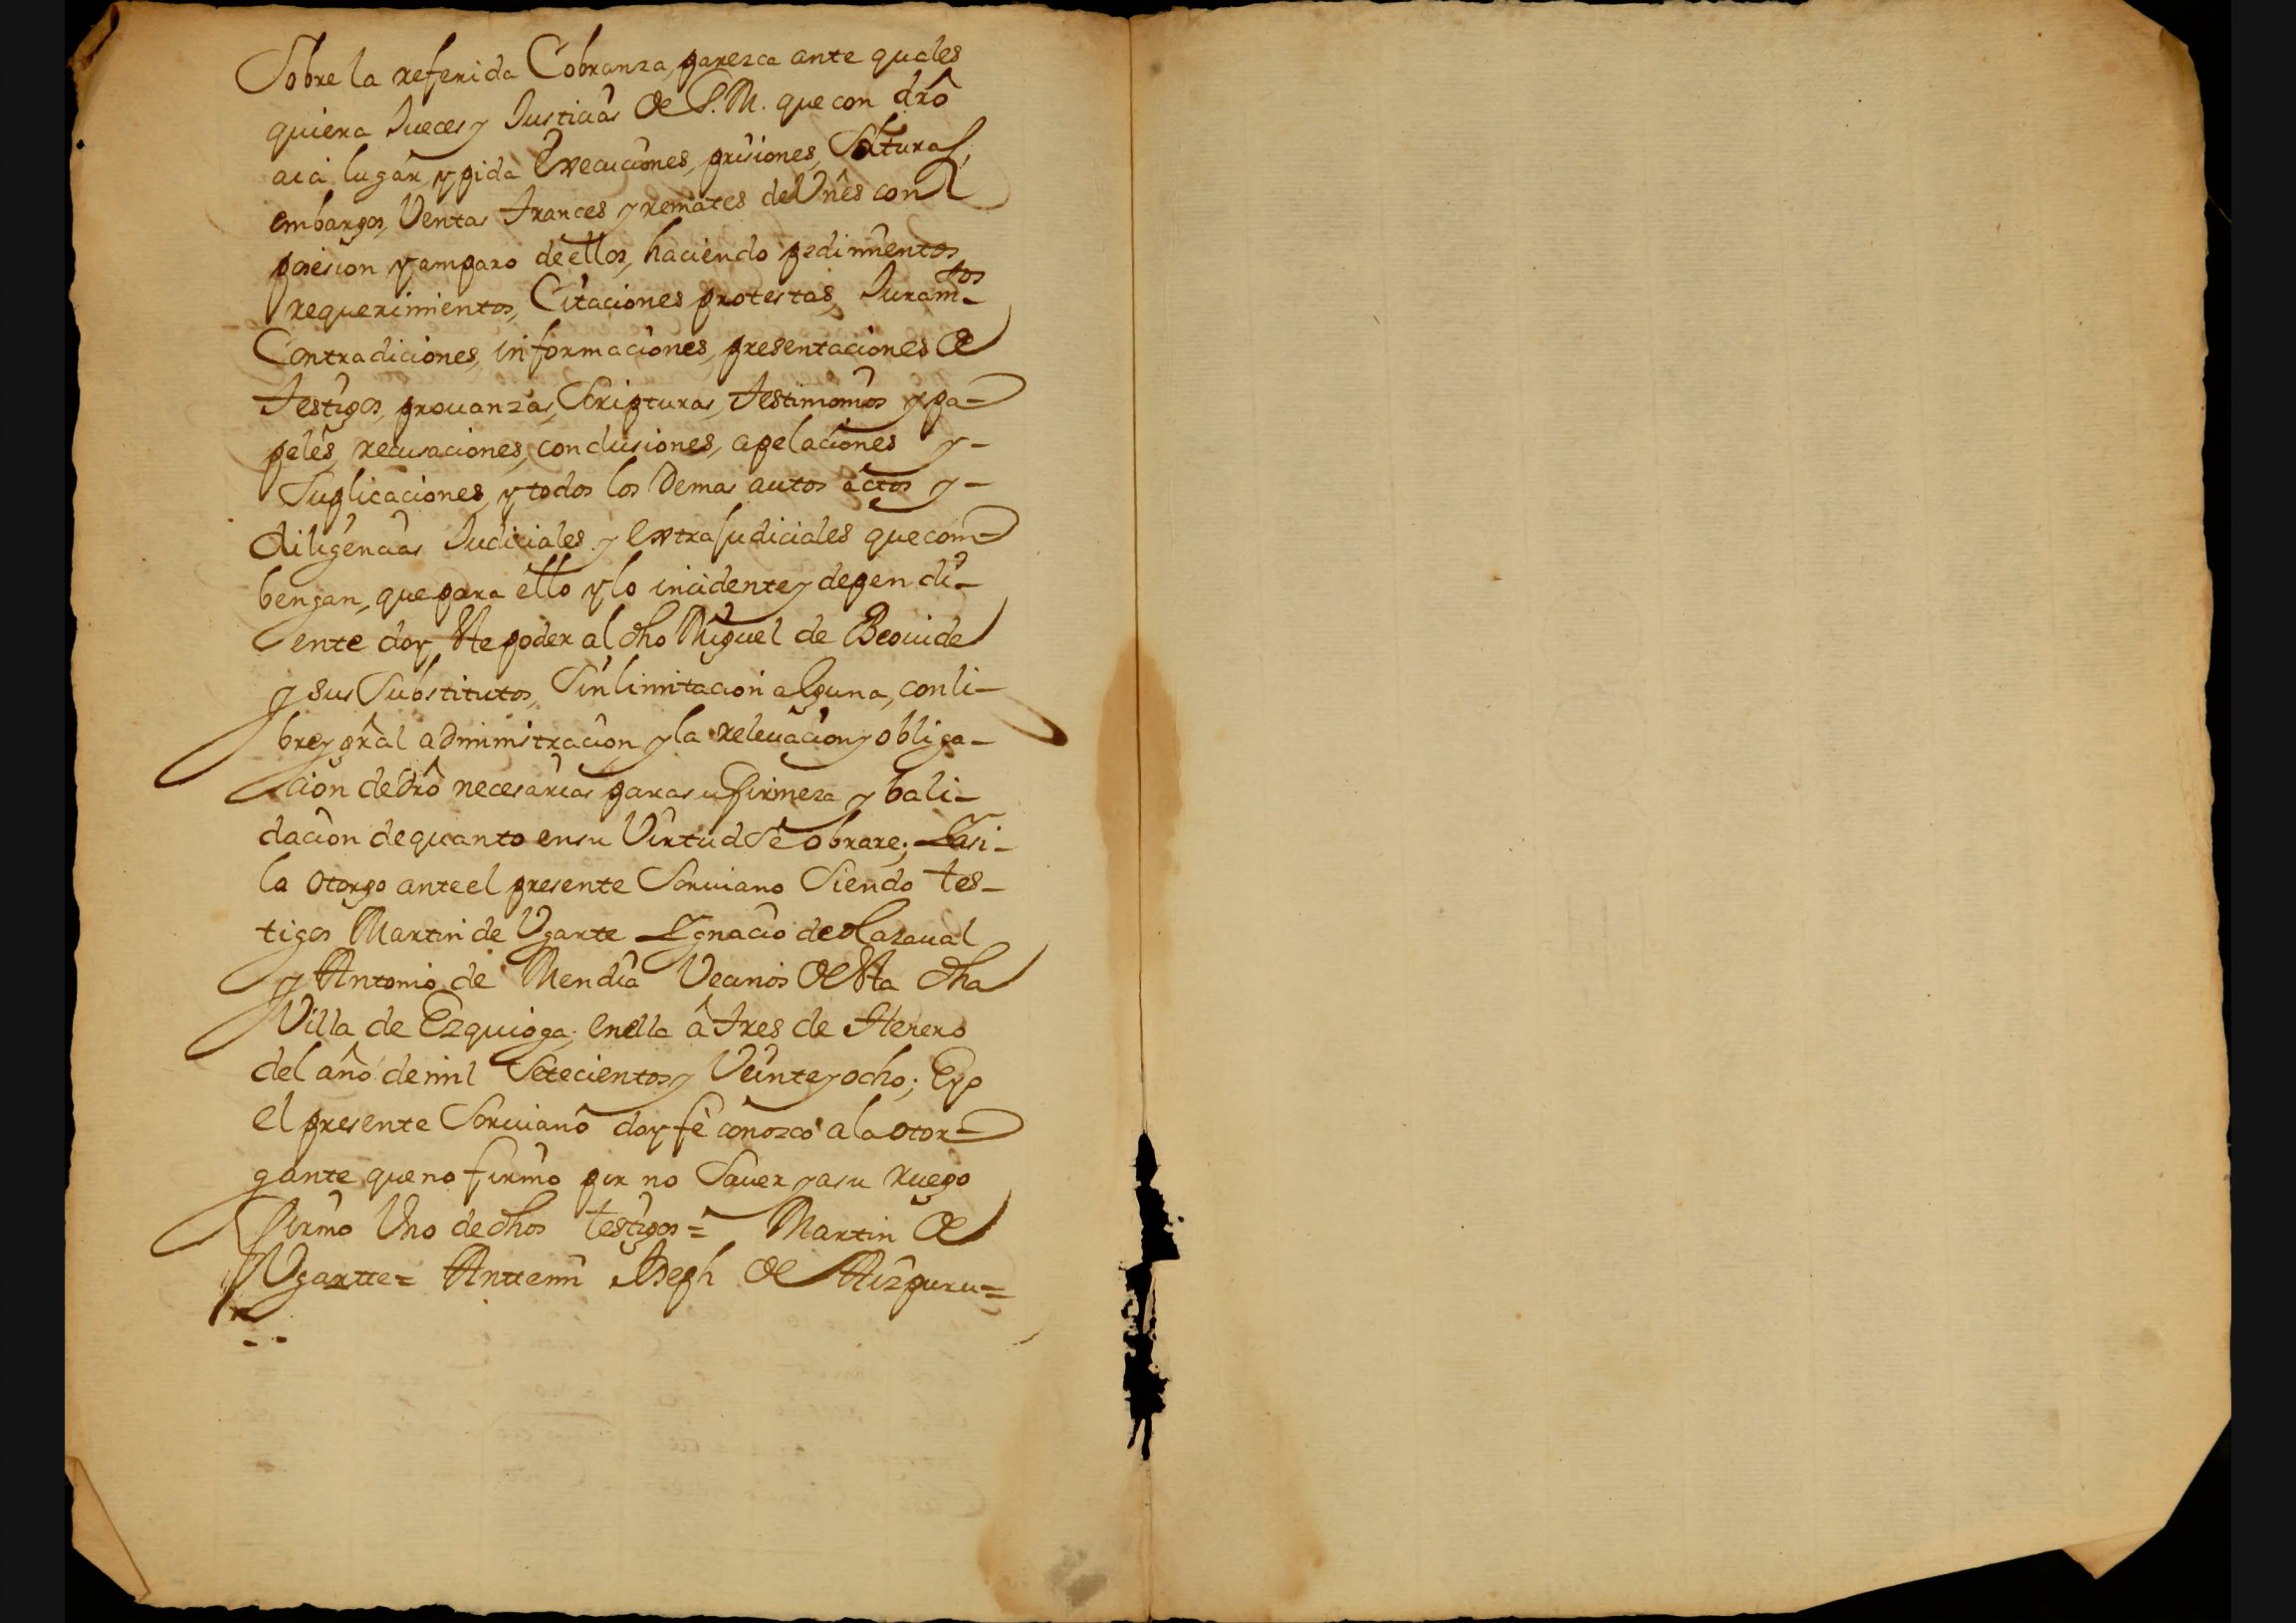 Sobre la referida Cobranza, parezca ante quales
quiera Jueces y Justicias de S. M. que con drô
aia lugar, y pida Execuciones, prisiones, Solturas,
embargos, Ventas trances y remates de Vnês con
posesion y amparo de ellos, haciendo pedimentos
requerimientos, Citaciones protestas, Juramtos
Contradiciones, informaciones, presentaciones de
testigos, prouanzas, Scripturas, testimonios y pa-
peles, recusaciones, conclusiones, apelaciones y-
Suplicaciones, y todos los Demas autos actos y-
diligencias Judiciales y extrajudiciales que com-
bengan, que para ello y lo incidente y depend i-
ente doy este poder al dho Miguel de Beouide
y sus Substitutos, Sin limitacion alguna, con li-
bre y grâl administracion y la releuacion y obliga-
cion de drô necesarias para su firmeza y bali-
dacion de quanto en su Virtud Se obrare; Y asi-
la otorgo ante el presente Scriuano Siendo tes-
tigos Martin de Vgarte Ygnacio de Olazaual
y Antonio de Mendia Vecinos de esta dha
Villa de Ezquioga; en ella â tres de Henero
del año de mil Setecientos y Veinte y ocho; E yo
el presente Scriuano doy fê conozco a la otor-
gante que no firmo por no Sauer y a su ruego
firmo Vno de dhos testigos = Martin de
Vgartte = Anttemi Joseph de Aizpuru =